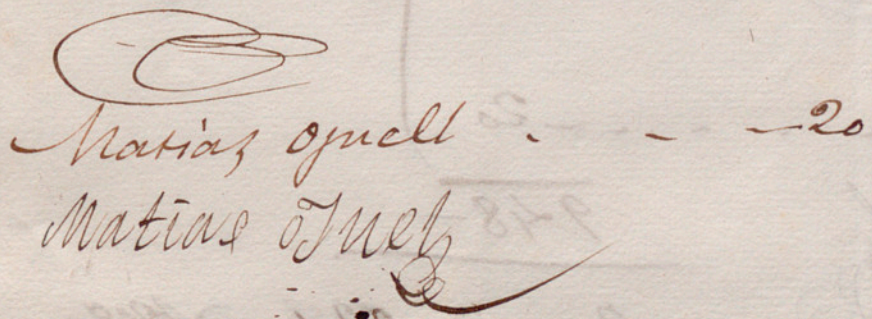 Matiaz ojuell - - - 20
Matias oJuel